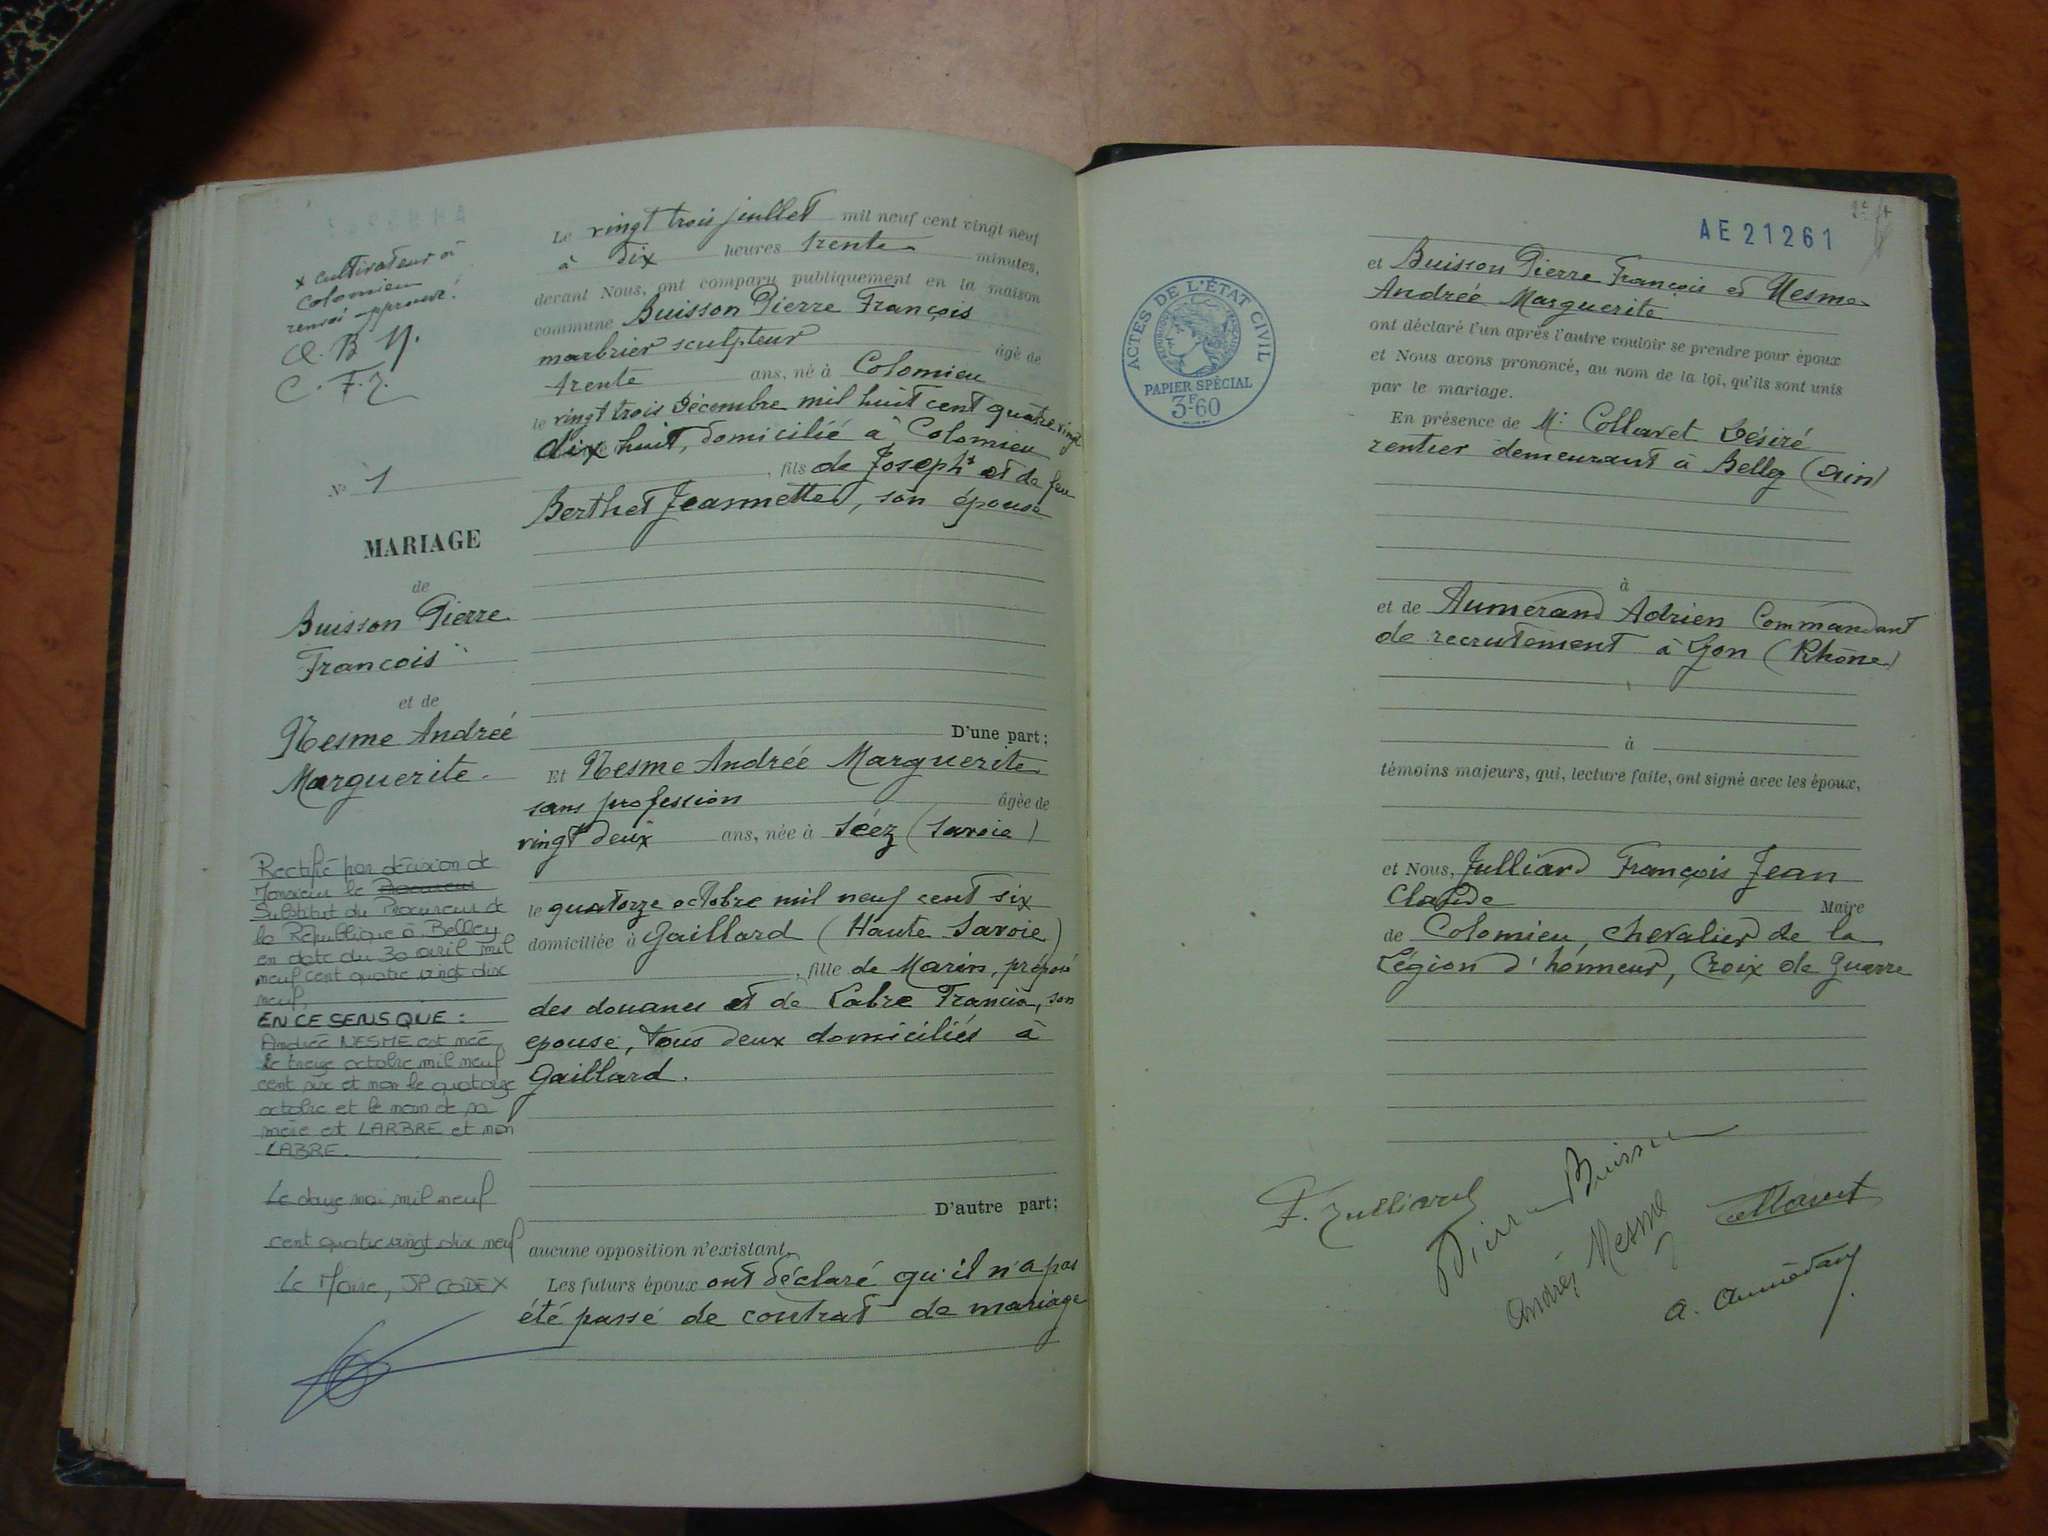 x cultivateur à
colomieu
renvoi approuvé!
A. B N.
C. F. J.
No 1
MARIAGE
de
Buisson Pierre
François
et de
Nesme Andréé
Marguerite
Rectifié par décision de
Monsieur le Procureur
Substitut du Procureur de
la République à Belley
en date du 30 avril mil
neuf cent quatre vingt dix
neuf,
EN CE SENS QUE :
Andrée NESME est née
le treize octobre mil neuf
cent six et non le quatorze
octobre et le nom de sa
mère est LARBRE et non
LABRE.
Le douze mai mil neuf
cent quatre vingt dix neuf
Le Maire, JP CODEX
Le vingt trois juillet mil neuf cent vingt neuf
à dix heures trente minutes,
devant Nous, ont comparu publiquement en la maison
commune Buisson Pierre François
marbrier sculpteur âgé de
trente ans, né à Colomieu
le vingt trois Décembre mil huit cent quatre vingt
dix huit, domicilié à Colomieu
, fils de Joseph x et de feu
Berthet Jeannette, son épouse
D'une part ;
Et Nesme Andréé Marguerite
sans profession âgée de
vingt deux ans, née à Séez (Savoie)
le quatorze octobre mil neuf cent six
domiciliée à Gaillard (Haute Savoie)
, fille de Marin, préposé
des douanes et de Labre Francia, son
epouse, tous deux domiciliés à
Gaillard.
D'autre part ;
aucune opposition n'existant.
Les futurs époux ont déclaré qu'il n'a pas
été passé de contrat de mariage
AE 21261
ACTES DE L'ÉTAT CIVIL
RÉPUBLIQUE FRANÇAISE
PAPIER SPÉCIAL
3F60
et Buisson Pierre François et Nesme
Andréé Marguerite
ont déclaré l'un après l'autre vouloir se prendre pour époux
et Nous avons prononcé, au nom de la loi, qu'ils sont unis
par le mariage.
En présence de M. Collavet Désiré
rentier demeurant à Belley (Ain)
à
et de Aumerand Adrien Commandant
de recrutement à Lyon (Rhône)
à
témoins majeurs, qui, lecture faite, ont signé avec les époux,
et Nous, Julliard François Jean
Claude Maire
de Colomieu, chevalier de la
Légion d'honneur, Croix de Guerre
F. Julliard
Pierre Buisson
Andrée Nesme
Collavet
A. Aumerand